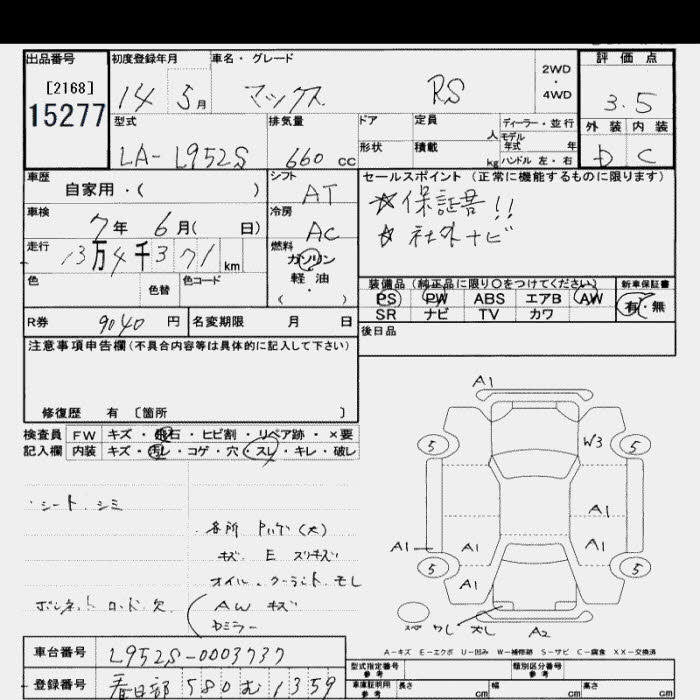 出品番号 初度登録年月 車名・グレード 評価点
[2168]
15277
14 5月 マックス RS 2WD・4WD 3.5
型式 排気量 ドア 定員 人 ディーラー・並行 外装 内装
LA-L952S 660cc 形状 積載 kg モデル年式 年 ハンドル 左・右 D C
車歴 シフト セールスポイント(正常に機能するものに限ります)
自家用・( ) AT ☆保証書!!
車検 冷房 ☆社外ナビ
7年 6月( 日) AC
走行 燃料
13万4千371km ガソリン
色 色替 色コード 軽油 装備品(純正品に限り○をつけてください) 新車保証書
・( ) PS PW ABS エアB AW 有・無
SR ナビ TV カワ
R券 9040円 名変期限 月 日 後日品
注意事項申告欄(不具合内容等は具体的に記入して下さい)
修復歴 有 〔箇所 〕
検査員 FW キズ・飛石・ヒビ割・リペア跡・×要
記入欄 内装 キズ・汚レ・コゲ・穴・スレ・キレ・破レ
A1
5 W3 5
A1
A1 A1 A1
5 A1 5
A2
・シート.シミ
各所 (大)
キズ E スリキズ
オイル.クーラント モレ
ボンネットロッド欠 AW キズ
Dミラー
A-キズ E-エクボ U-凹み W-補修跡 S-サビ C-腐食 XX-交換済
車台番号 L952S-0003737 型式指定番号 参考 類別区分番号 参考
登録番号 春日部 580 む 1359 車庫証明用 参考 長さ cm 幅 cm 高さ cm